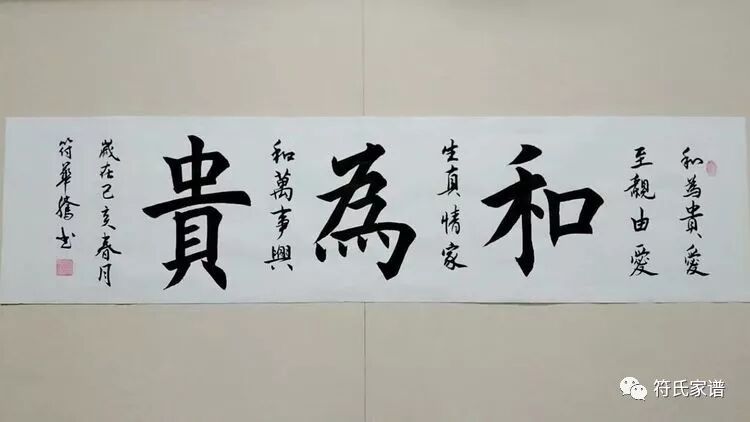 和為貴愛
至親由愛
和
生真情家
為
和萬事興
貴
歲在己亥春月
符華騰书
符氏家谱